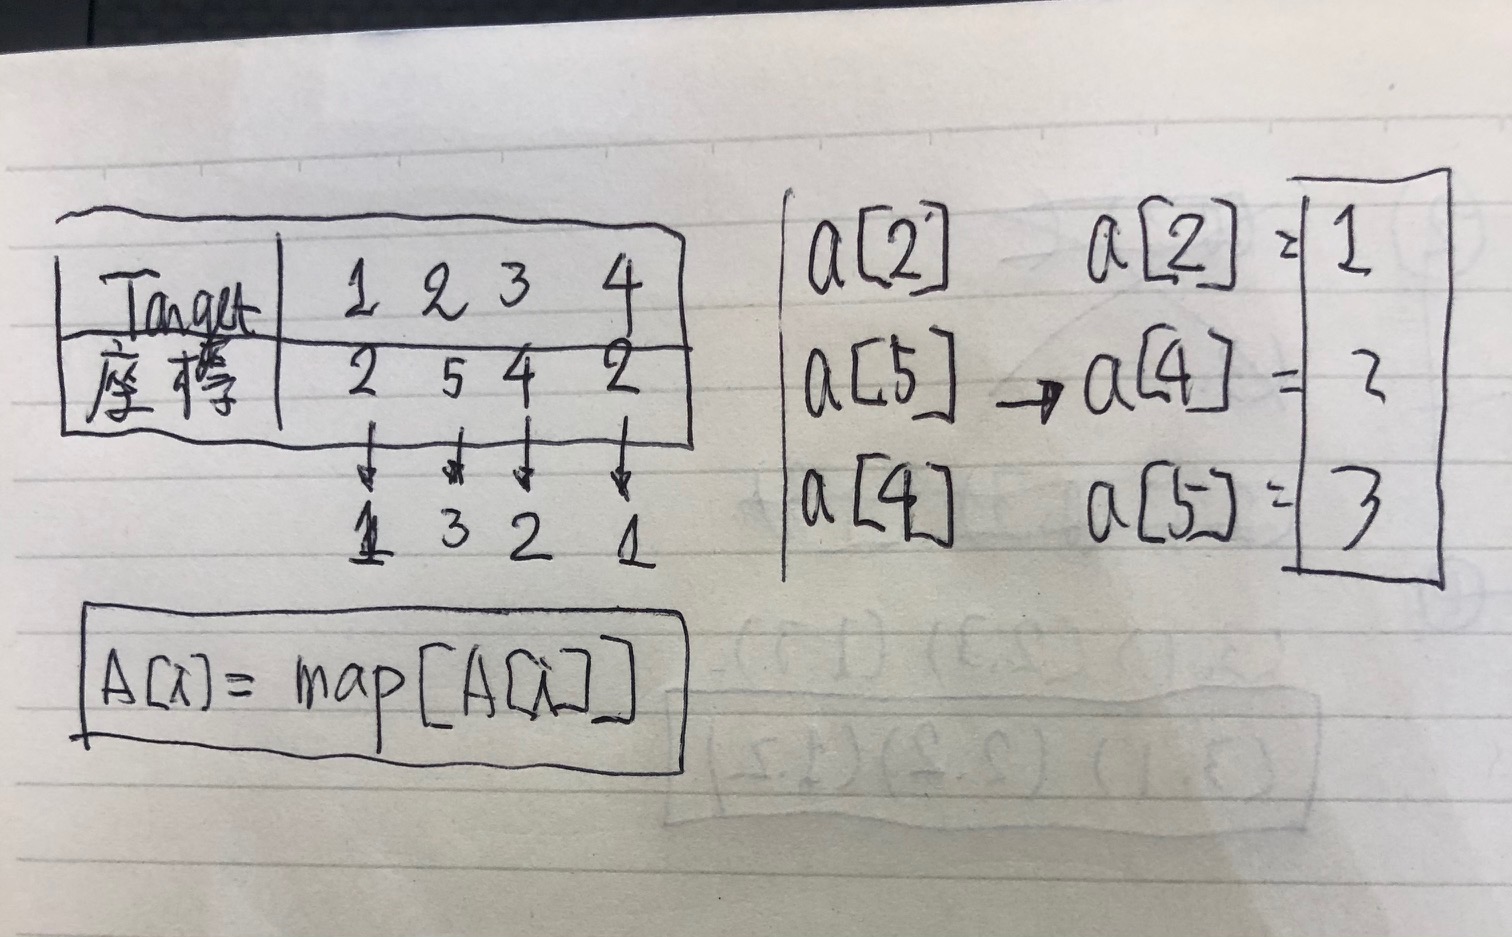 Target 1 2 3 4
座標 2 5 4 2
1 3 2 1
A[i] = map[A[i]]
a[2] a[2] = 1
a[5] → a[4] = 2
a[4] a[5] = 3